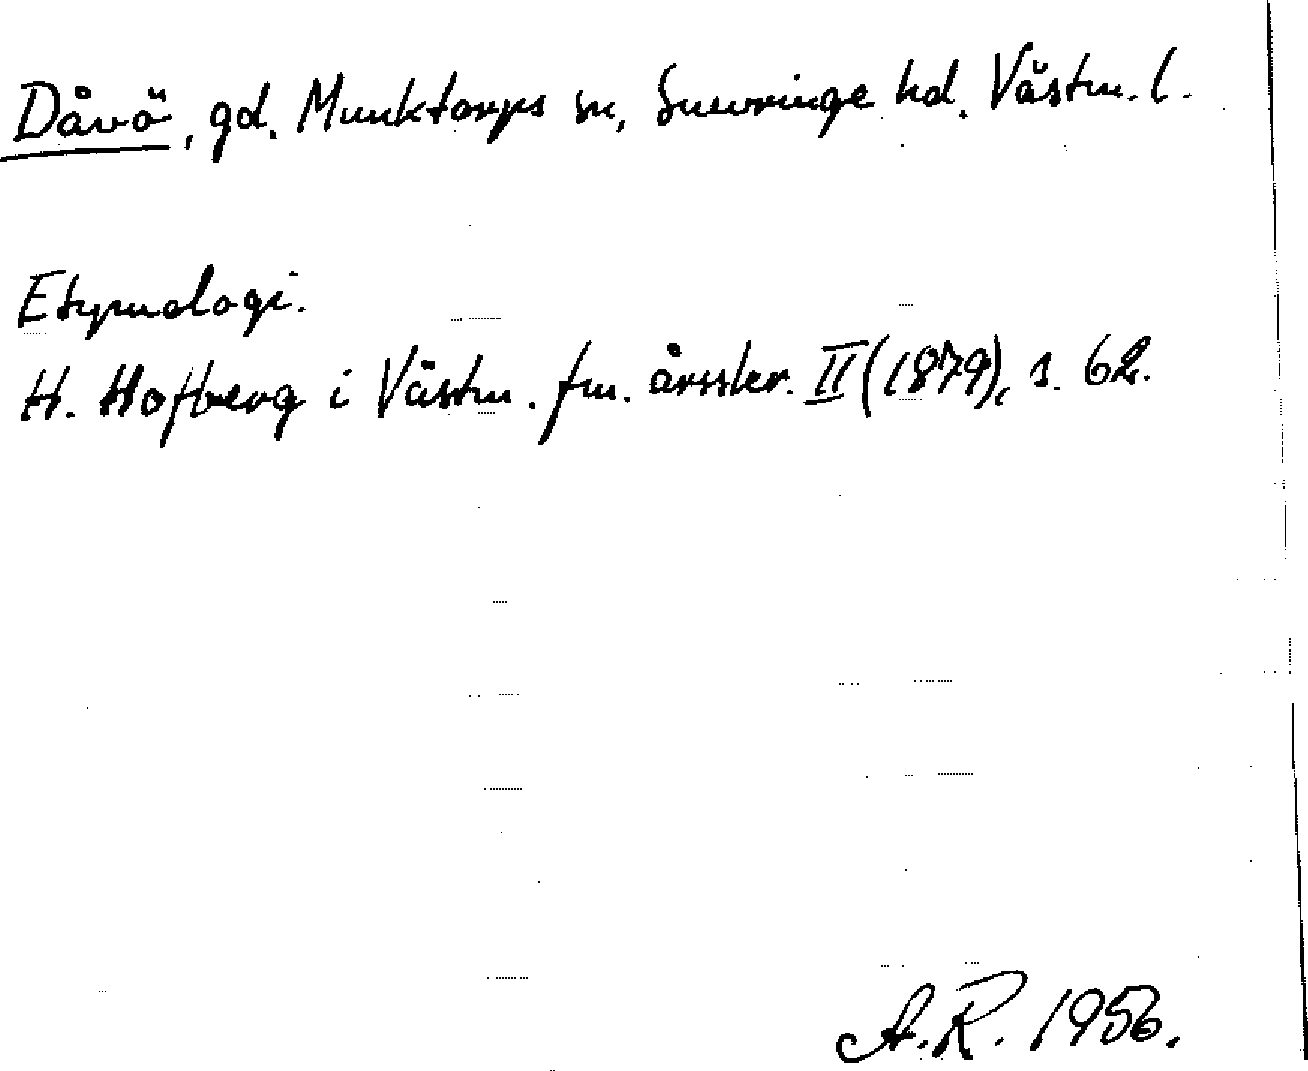 Dåvö, gd. Munktorps sn, Snevringe hd. Västm. l.
Etymologi.
H. Hofberg i Västm. fm. årsskr. II (1879), s. 62.
A.R. 1956.